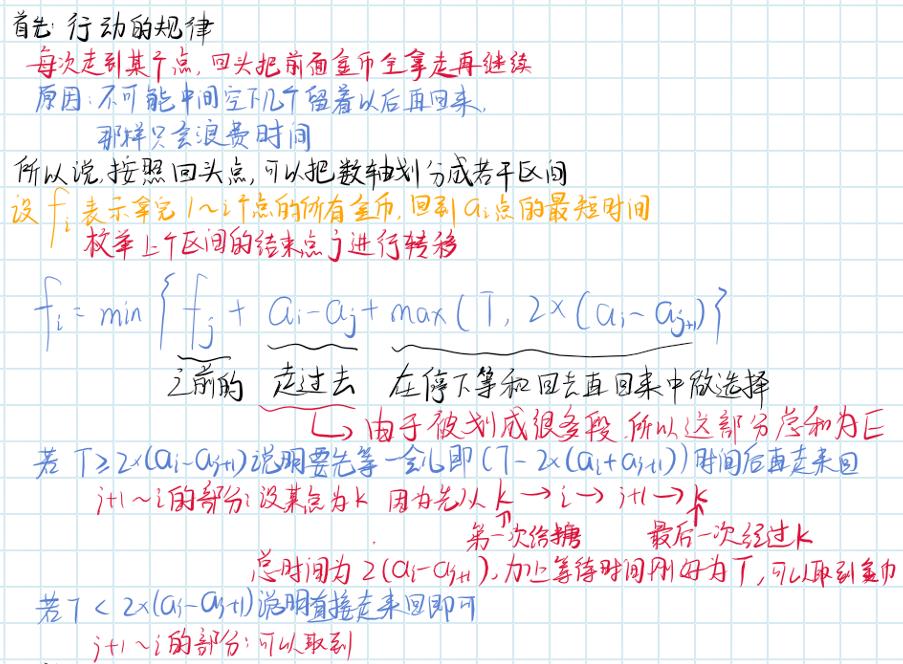 首先:行动的规律
每次走到某个点,回头把前面金币全拿走再继续
原因:不可能中间空下几个留着以后再回来,
那样只会浪费时间
所以说,按照回头点,可以把数轴划分成若干区间
设 fi 表示拿完 1~i个点的所有金币,回到 ai点的最短时间
枚举上个区间的结束点 j 进行转移
fi = min { fj + ai - aj + max(T, 2×(ai - aj+1) }
之前的 走过去 在停下等和回去再回来中做选择
↳ 由于被划成很多段,所以这部分总和为E
若 T≥2×(ai-aj+1)说明要先等一会儿即(T-2×(ai+aj+1))时间后再走来回
j+1~i的部分:设某点为k 因为先从 k→i→j+1→k
第一次给糖 最后一次经过k
总时间为 2(ai-aj+1),加上等待时间刚好为T,可以取到金币
若T<2×(ai-aj+1)说明直接走来回即可
j+1~i的部分:可以取到